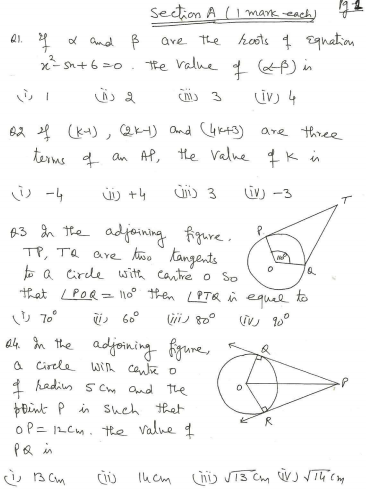 Section A (1 mark each) Pg 1
Q1. If α and β are the roots of Equation
x²-5x+6=0. The value of (α-β) is
(i) 1 (ii) 2 (iii) 3 (iv) 4
Q2 If (k-1), (2k-1) and (4k+3) are three
terms of an AP, the value of K is
(i) -4 (ii) +4 (iii) 3 (iv) -3
T
Q3 In the adjoining figure,
P
TP, TQ are two tangents
110°
O
Q
to a circle with centre O So
that ∠POQ = 110° then ∠PTQ is equal to
(i) 70° (ii) 60° (iii) 80° (iv) 90°
Q4. In the adjoining figure,
Q
a circle with centre O
O
P
of radius 5 cm and the
R
point P is such that
OP = 12 cm. The value of
PQ is
(i) 13 cm (ii) 14 cm (iii) √13 cm (iv) √14 cm